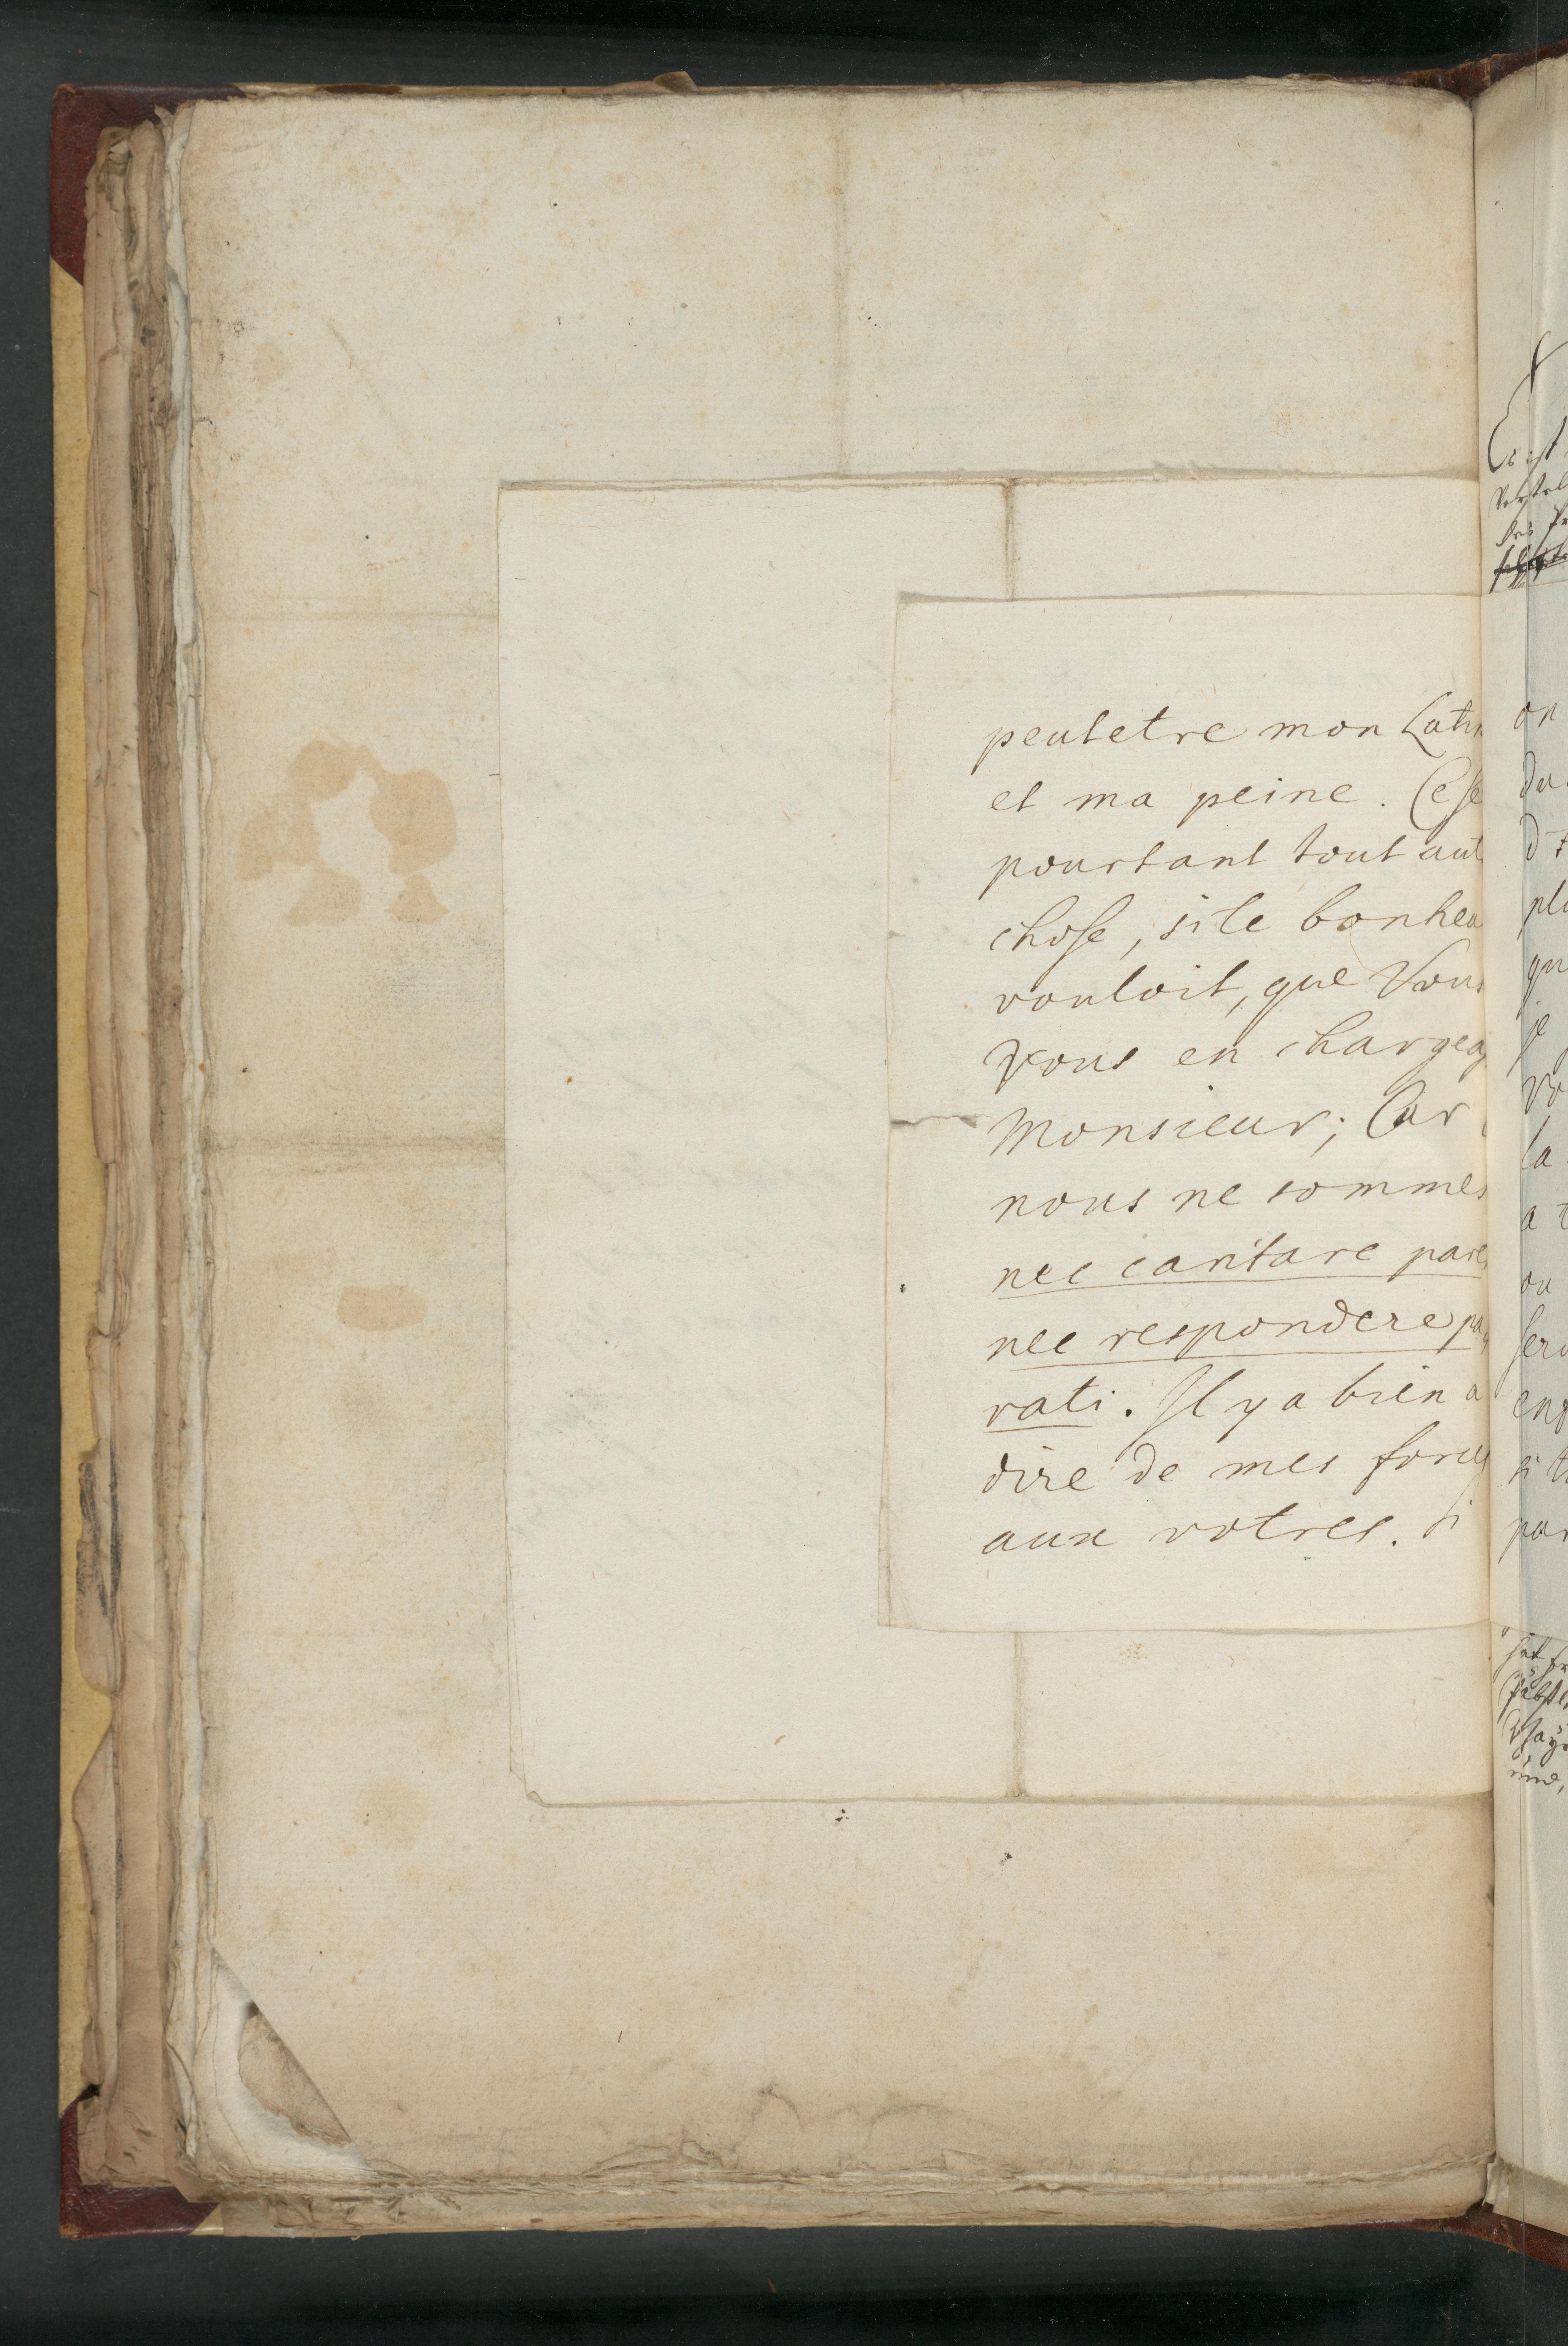 peutetre mon Latin
et ma peine. Ce se
pourtant tout aut
chose, si le bonheu
vouloit, que Vous
Vous en chargea
Monsieur; Car
nous ne sommes
nec cantare pares
nec respondere pa
rati. Il y a bien a
dire de mes forces
aux votres. Si
on
du
plu
qu
je
vo
la
a
ou
ser
enp
si
par